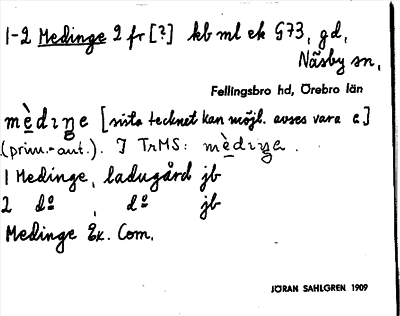 1-2 Medinge 2 fr [?] kb ml ek G73, gd,
Näsby sn,
Fellingsbro hd, Örebro län
mèdıŋe [sista tecknet kan möjl. avses vara e]
(prim.-ant.). I TrMS: mèdıŋa.
1 Medinge, ladugård jb
2 dº , dº jb
Medinge Ek. Com.
JÖRAN SAHLGREN 1909